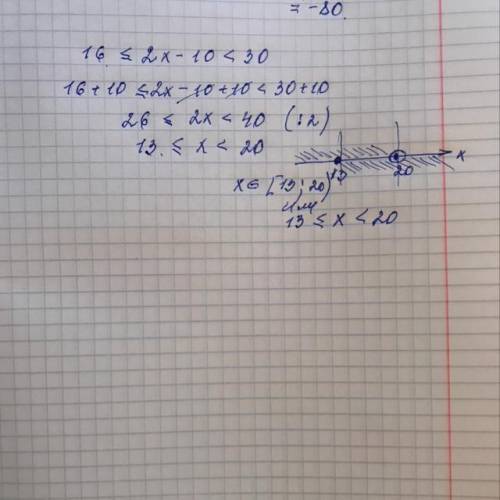 = -80.
16 ≤ 2x - 10 < 30
16 + 10 ≤ 2x - 10 + 10 < 30 + 10
26 ≤ 2x < 40 (:2)
13 ≤ x < 20
13 20 x
x ∈ [13; 20)
или
13 ≤ x < 20